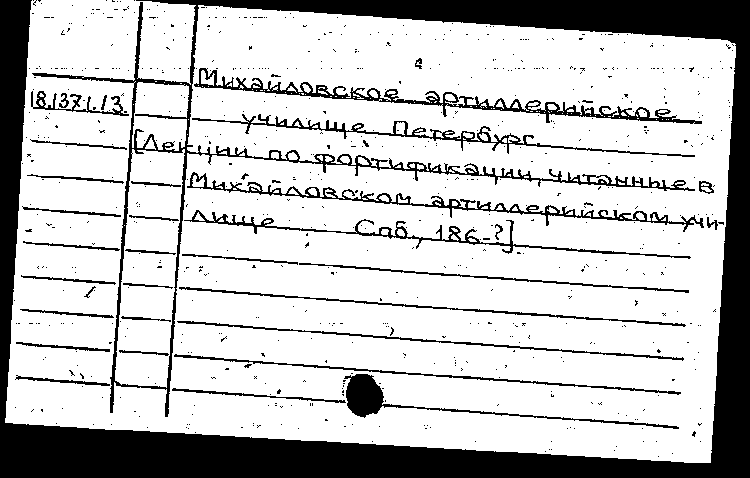 Михайловское артиллерийское
18.1371.13.
училище Петербург.
[Лекции по фортификации, читанные в
Михайловском артиллерийском учи-
лище Спб., 186-?]